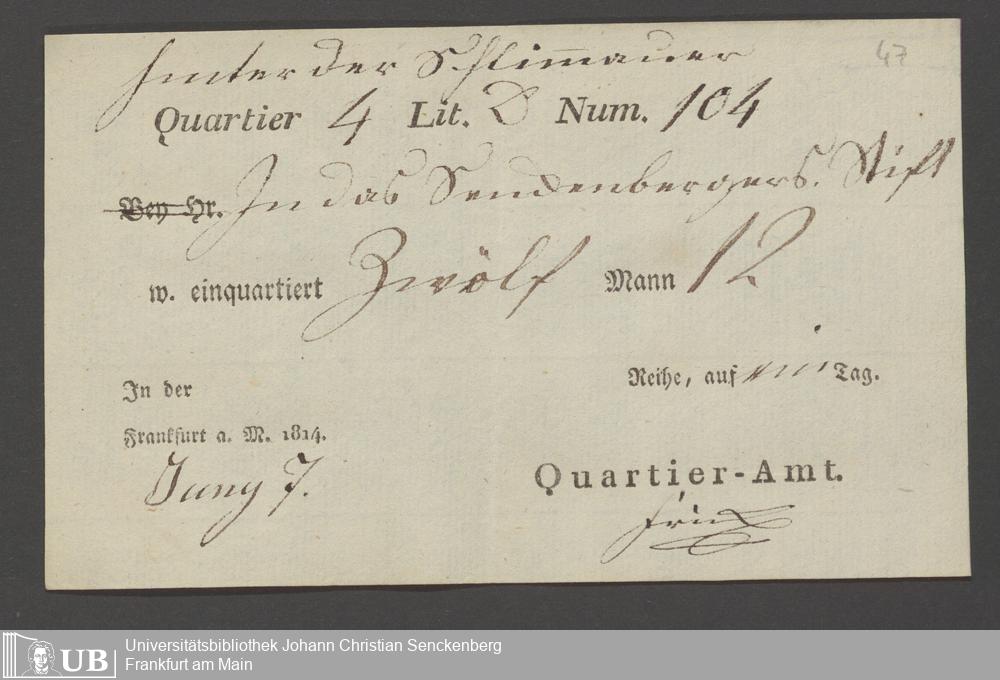 hinter der Schlimmauer
47
Quartier 4 Lit. D Num. 104
Bey Hr. In das Sendenbergers. Stift
w. einquartiert Zwölf Mann 12
In der Reihe, auf ein Tag.
Frankfurt a. M. 1814.
Juny 7.
Quartier-Amt.
UB
Universitätsbibliothek Johann Christian Senckenberg
Frankfurt am Main